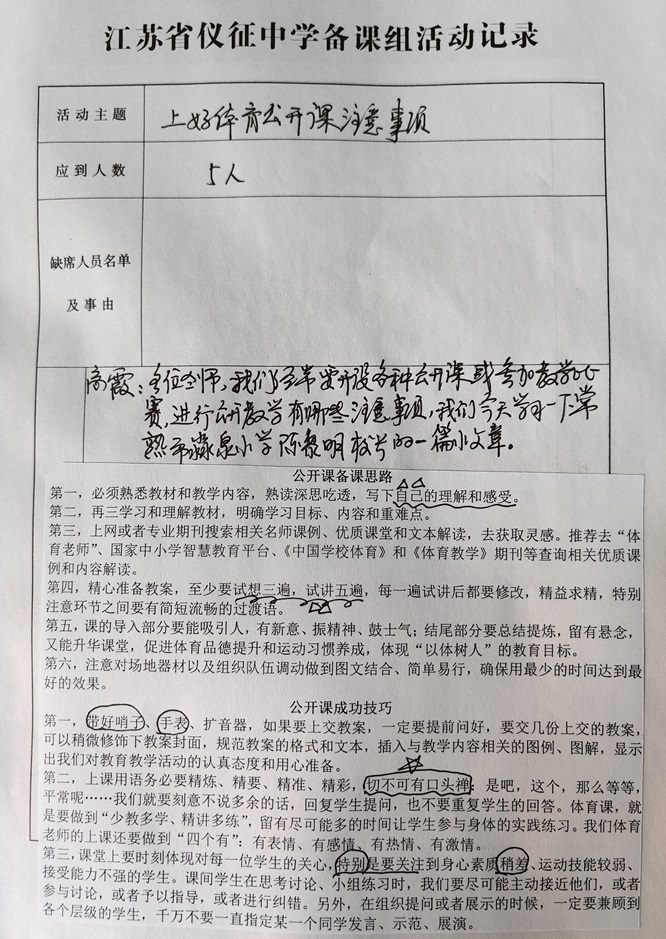 江苏省仪征中学备课组活动记录
活动主题
上好体育公开课注意事项
应到人数
5人
缺席人员名单
及事由
高霞：各位老师，我们经常要开设各种公开课或参加教学比
赛，进行公开教学有哪些注意事项，我们今天学习一下常
熟市 泉小学陈黎明校长的一篇小文章。
公开课备课思路
第一，必须熟悉教材和教学内容，熟读深思吃透，写下自己的理解和感受。
第二，再三学习和理解教材，明确学习目标、内容和重难点。
第三，上网或者专业期刊搜索相关名师课例、优质课堂和文本解读，去获取灵感。推荐去“体
育老师”、国家中小学智慧教育平台、《中国学校体育》和《体育教学》期刊等查询相关优质课
例和内容解读。
第四，精心准备教案，至少要试想三遍，试讲五遍，每一遍试讲后都要修改，精益求精，特别
注意环节之间要有简短流畅的过渡语。
第五，课的导入部分要能吸引人，有新意、振精神、鼓士气；结尾部分要总结提炼，留有悬念，
又能升华课堂，促进体育品德提升和运动习惯养成，体现“以体树人”的教育目标。
第六，注意对场地器材以及组织队伍调动做到图文结合、简单易行，确保用最少的时间达到最
好的效果。
公开课成功技巧
第一，带好哨子、手表、扩音器，如果要上交教案，一定要提前问好，要交几份上交的教案，
可以稍微修饰下教案封面，规范教案的格式和文本，插入与教学内容相关的图例、图解，显示
出我们对教育教学活动的认真态度和用心准备。
第二，上课用语务必要精炼、精要、精准、精彩，切不可有口头禅：是吧，这个，那么等等，
平常呢……我们就要刻意不说多余的话，回复学生提问，也不要重复学生的回答。体育课，就
是要做到“少教多学、精讲多练”，留有尽可能多的时间让学生参与身体的实践练习。我们体育
老师的上课还要做到“四个有”：有表情、有感情、有热情、有激情。
第三，课堂上要时刻体现对每一位学生的关心，特别是要关注到身心素质稍差、运动技能较弱、
接受能力不强的学生。课间学生在思考讨论、小组练习时，我们要尽可能主动接近他们，或者
参与讨论，或者予以指导，或者进行纠错。另外，在组织提问或者展示的时候，一定要兼顾到
各个层级的学生，千万不要一直指定某一个同学发言、示范、展演。